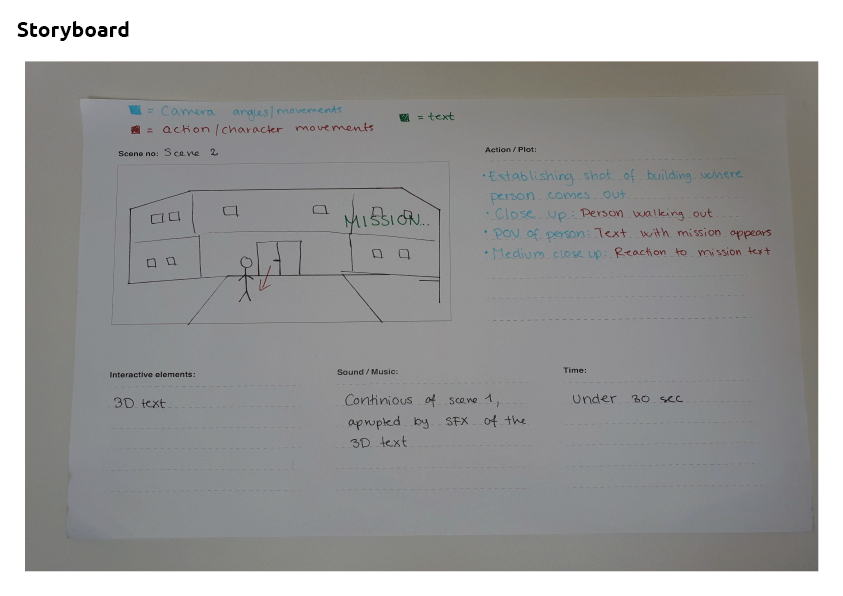 Storyboard
= Camera angles/movements
= text
= action/character movements
Scene no: Scene 2
Action / Plot:
• Establishing shot of building where
person comes out
• Close up: Person walking out
• POV of person: Text with mission appears
• Medium close up: Reaction to mission text
MISSION...
Interactive elements:
3D text
Sound / Music:
Continious of scene 1,
aprupted by SFX of the
3D text
Time:
Under 30 sec